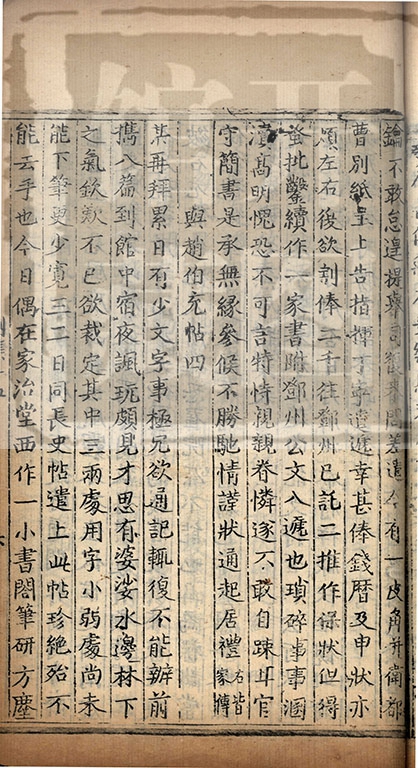 錀不敢怠遑提舉司數來問差遣今有一皮角并衛都
曹別紙呈上告指揮丁寧遣遞幸甚俸錢曆及申狀亦
煩左右後欲刻俸三吾往鄧州已託二推作保狀但得
蚤批鑿續作一家書附鄧州公文入遞也瑣碎事事溷
瀆髙明愧恐不可言特恃親親眷憐遂不敢自踈耳官
守簡書是承無縁參候不勝馳情謹狀通起居禮石皆家傳
與趙伯充帖四
某再拜累日有少文字事極冗欲通記輙復不能辦前
攜八篇到館中宿夜諷玩頗見才思有婆娑水邊林下
之氣欽歎不已欲裁定其中三兩處用字小弱處尚未
能下筆更少寛三二日同長史帖遣上此帖珍絶殆不
能云手也今日偶在家治堂西作一小書閤筆研方塵